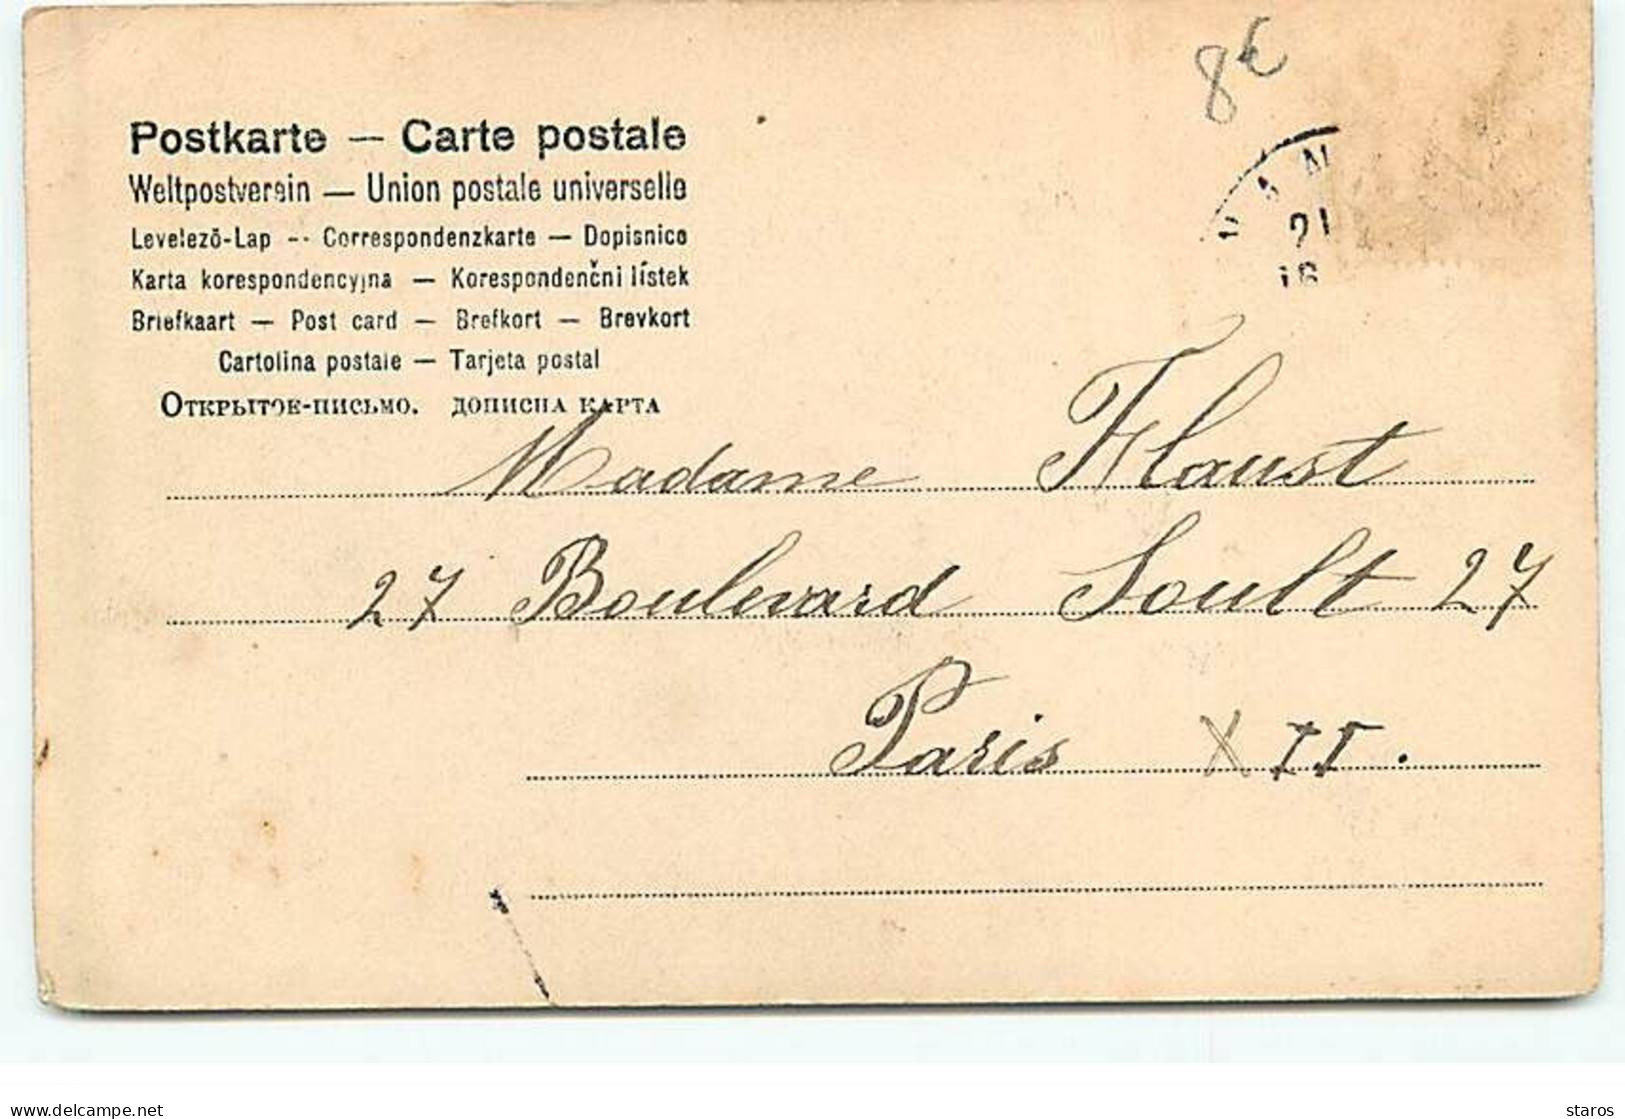 8€
Postkarte — Carte postale
Weltpostverein — Union postale universelle
Levelező-Lap -- Correspondenzkarte — Dopisnice
Karta korespondencyjna — Korespondenční lístek
Briefkaart — Post card — Brefkort — Brevkort
Cartolina postale — Tarjeta postal
Открытое-письмо. дописна карта
21
Madame Flaust
27 Boulevard Soult 27
Paris XII.
www.delcampe.net
staros